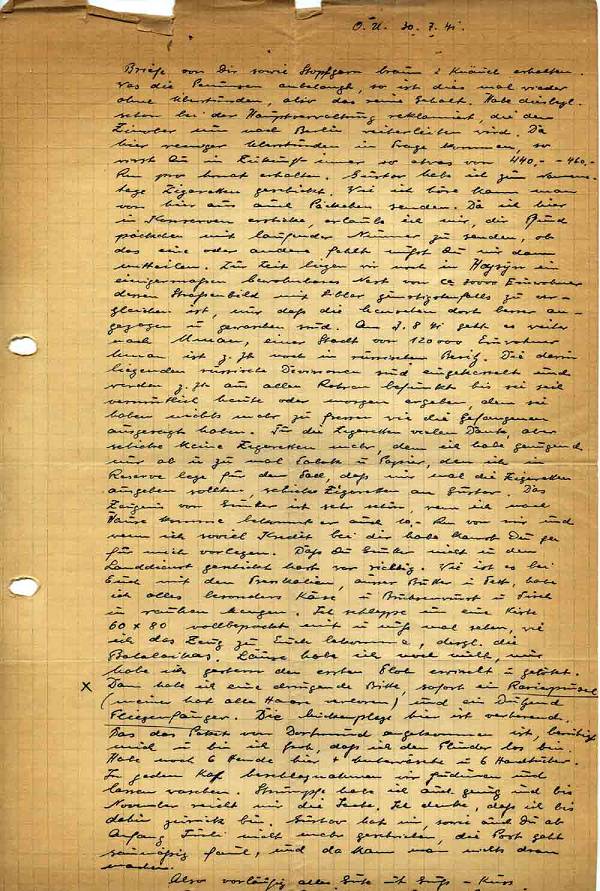 O.U. 30.7.41.
Briefe von Dir sowie Stopfgarn braun 2 Knäuel erhalten.
Was die Penunsen anbelangt, so ist dies mal wieder
ohne Überstunden, also das reine Gehalt. Habe diesbzgl.
schon bei der Hauptverwaltung reklamiert, die den
nur nach Berlin weiterleiten wird. Da
hier weniger Überstunden in Frage kommen, so
wirst Du in Zukunft immer so etwas von 440,- - 460,-
Rm pro Monat erhalten. Günter habe ich zum
tage Zigaretten geschickt. Wie ich höre kann man
von hier aus auch Päckchen senden. Da ich hier
in Konserven ersticke, erlaube ich mir, dir Pfund
päckchen mit laufender Nummer zu senden, ob
das eine oder andere fehlt mußt Du mir dann
mitteilen. Zur Zeit liegen wir noch in Haysyn ein
einigermaßen bewohnbares Nest von ca 30000 Einwohner
dessen Straßenbild mit günstigstenfalls zu ver-
gleichen ist, nur daß die Menschen dort besser an-
gezogen u gewaschen sind. Am 1.8.41 geht es weiter
nach Uman, einer Stadt von 120000 Einwohner
Uman ist z.Zt noch in russischem Besitz. Die darin
liegenden russische Divisionen sind eingekesselt und
werden z.Zt aus allen Rohren befunkt bis sie sich
vermutlich heute oder morgen ergeben, denn sie
haben nichts mehr zu fressen wie die Gefangenen
ausgesagt haben. Für die Zigaretten vielen Dank, aber
schicke keine Zigaretten mehr denn ich habe genügend
nur ab u zu mal Tabak u Papier, den ich in
Reserve lege für den Fall, daß mir mal die Zigaretten
ausgehen sollten, schicke Zigaretten an Günter. Das
Zeugnis von Günter ist sehr schön, wenn ich nach
Hause komme bekommt er auch 10.- Rm von mir und
wenn ich soviel Kredit bei dir habe kannst Du sie
für mich vorlegen. Daß Du Günter nicht in den
Landdienst geschickt hast war richtig. Wie ist es bei
Euch mit den Fressalien, ausser Butter u Fett, habe
ich alles besonders Käse u Büchsenwurst u Fisch
in rauhen Mengen. Ich schleppe in eine Kiste
60 x 80 vollbepackt mit u muß mal sehen, wie
ich das Zeug zu Euch bekomme, dsgl. die
Balalaikas. Läuse habe ich noch nicht, nur
habe ich gestern den ersten Floh erwischt u getötet.
X Dann habe ich eine dringende Bitte, sofort ein Rasierpinsel
(meiner hat alle Haare verloren) und ein Dutzend
Fliegenfänger. Die Mückenplage hier ist verheerend.
Das das Paket von Dortmund angekommen ist, beruhigt
mich u bin ich froh, daß ich den Plunder los bin.
Habe noch 6 Hemde hier 4 Unterwäsche u 6 Handtücher.
In jedem Kaff beschlagnahmen wir Jüdinnen und
lassen waschen. Strümpfe habe ich auch genug und bis
November reicht mir die Seife. Ich denke, daß ich bis
dahin zurück bin. Günter hat mir sowie auch Du ab
Anfang Juli nicht mehr geschrieben, die Post geht
saumäßig faul, und da kann man nichts dran
machen.
Also vorläufig alles Gute mit Gruß - Kuss